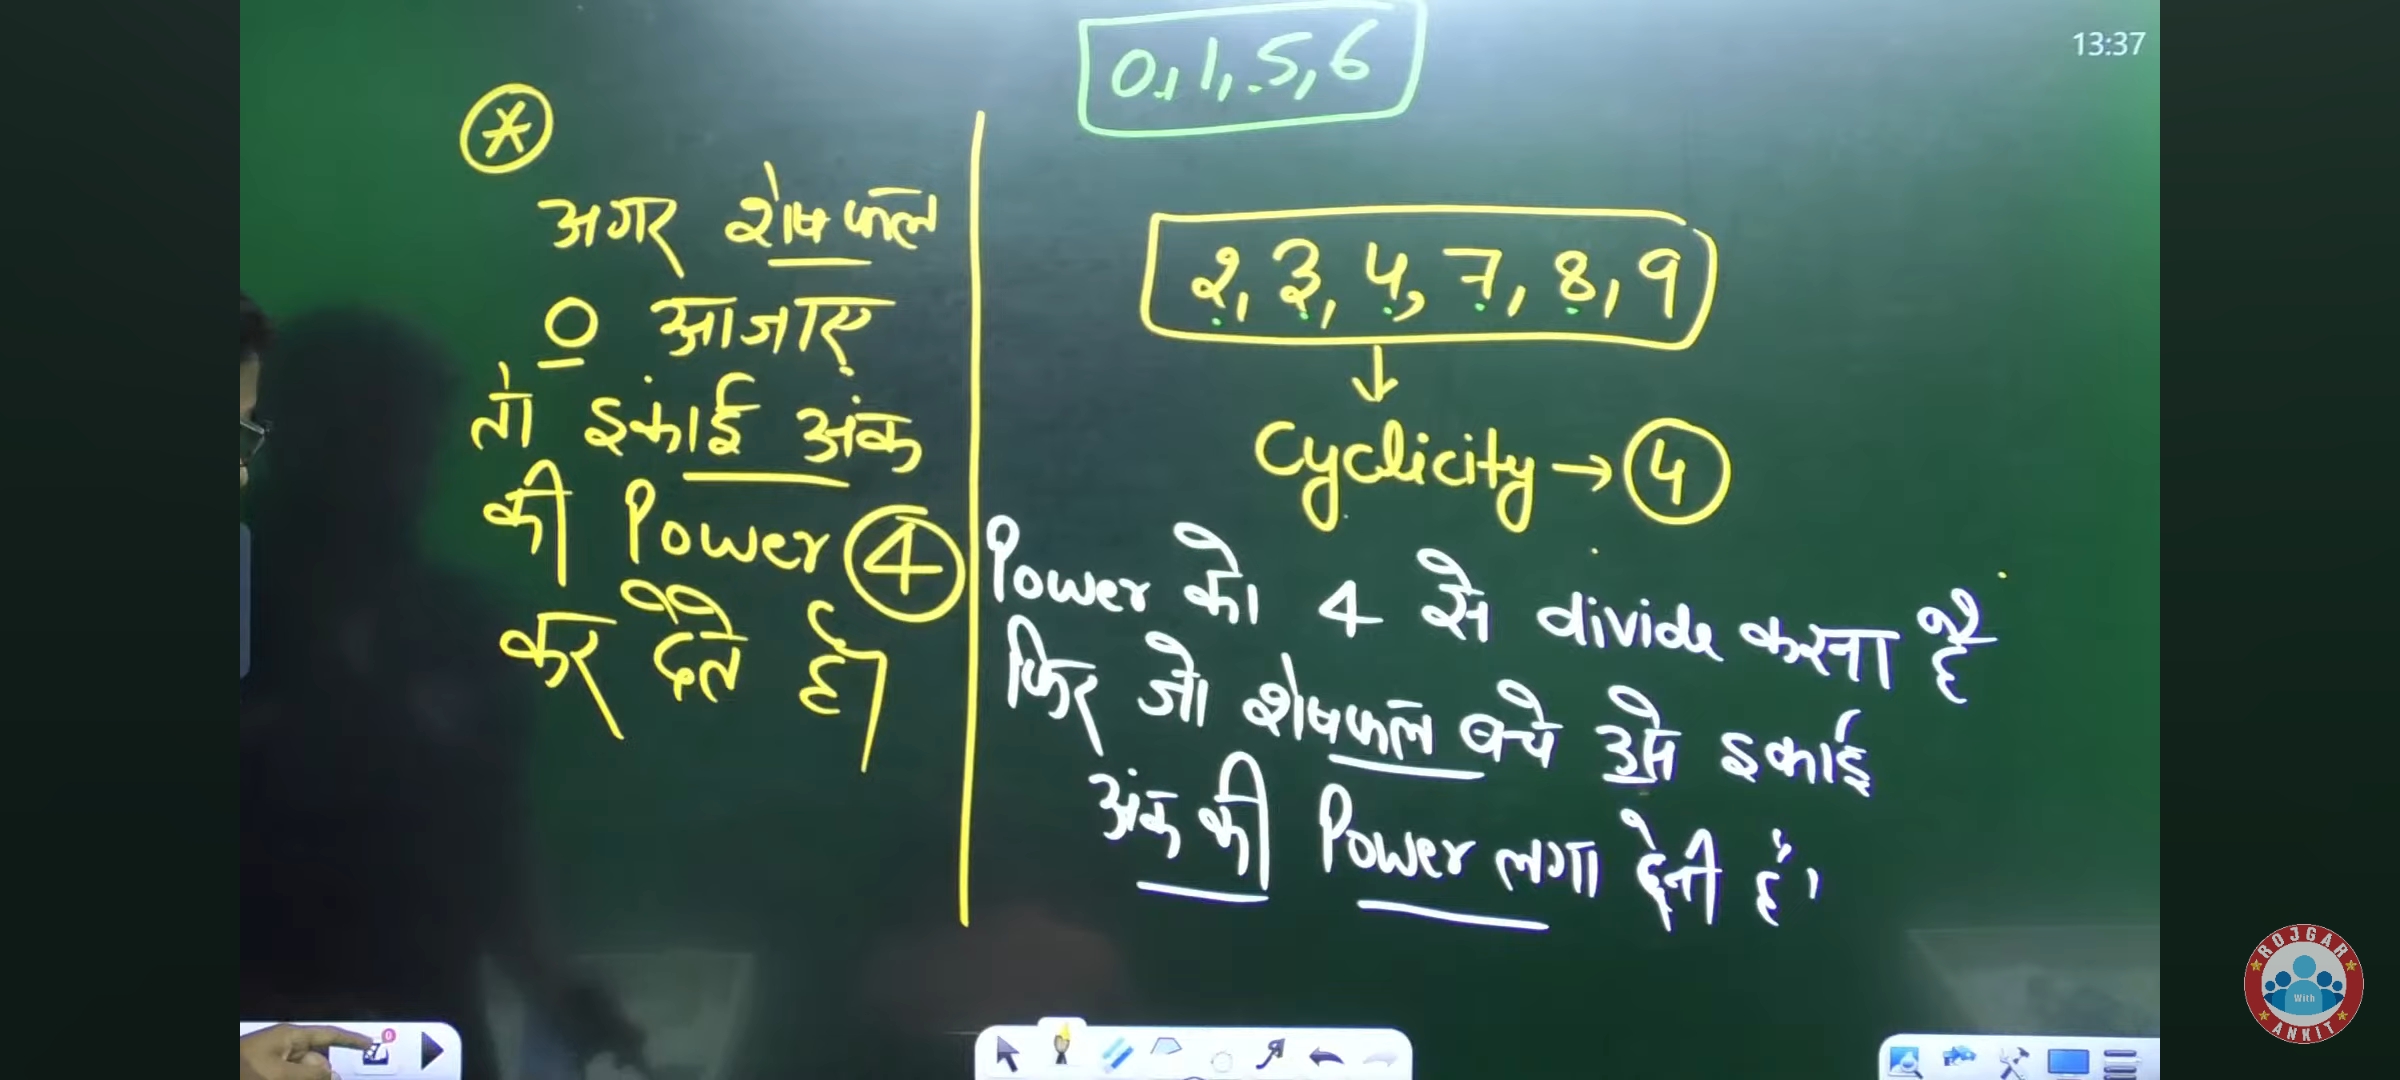 0, 1, 5, 6
13:37
*
अगर शेषफल
0 आजाए
तो इकाई अंक
की Power 4
कर देते है।
2, 3, 4, 7, 8, 9
Cyclicity → 4
Power को 4 से divide करना है
फिर जो शेषफल बचे उसे इकाई
अंक की Power लगा देनी है।
ROJGAR
With
ANKIT